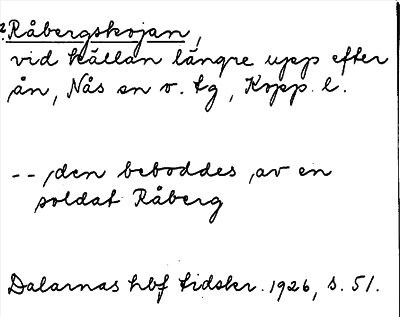 2 Råbergskojan,
vid källan längre upp efter
ån, Nås sn o. tg, Kopp. l.
-- den beboddes av en
soldat Råberg
Dalarnas hbf tidskr. 1926, s. 51.